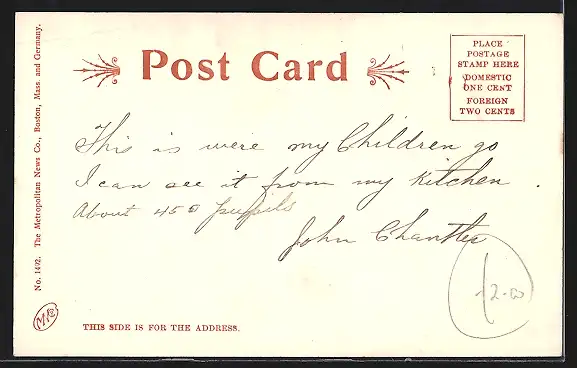 Post Card
PLACE
POSTAGE
STAMP HERE
DOMESTIC
ONE CENT
FOREIGN
TWO CENTS
No. 1492. The Metropolitan News Co., Boston, Mass. and Germany.
This is were my Children go
I can see it from my Kitchen.
About 450 pupils
John Chantler
12-00
THIS SIDE IS FOR THE ADDRESS.